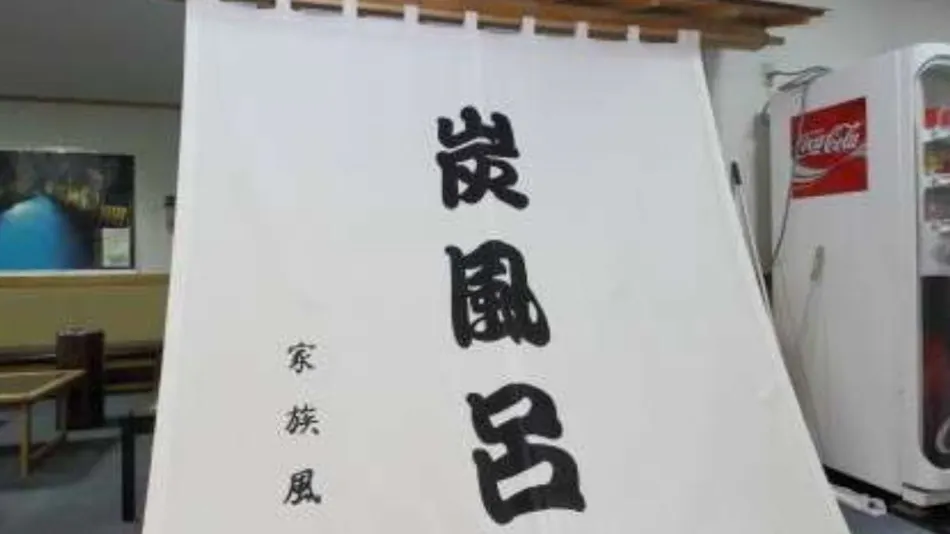 炭風呂
家族風
Coca-Cola